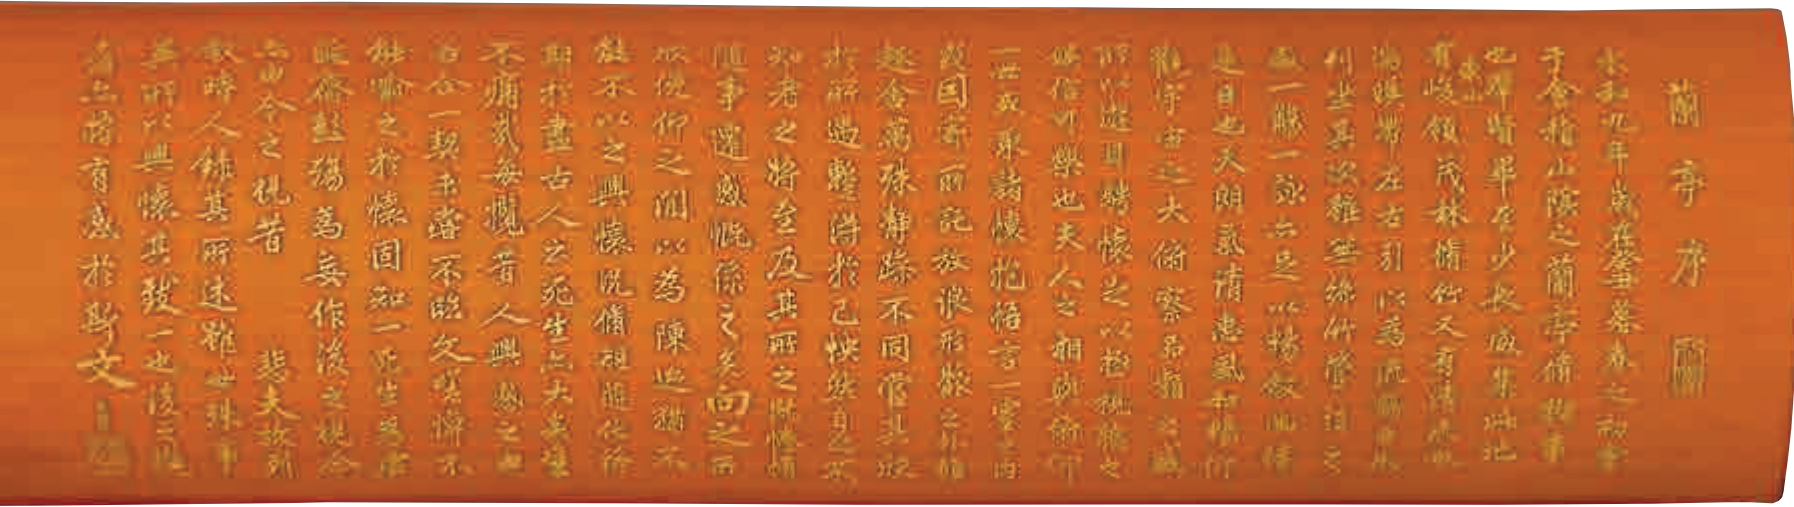 蘭亭序圖
永和九年歲在癸丑暮春之初會
于會稽山陰之蘭亭脩禊事
也羣賢畢至少長咸集此地
有崇山峻領茂林脩竹又有清流激
湍暎帶左右引以為流觴曲水
列坐其次雖無絲竹管弦之
盛一觴一詠亦足以暢敘幽情
是日也天朗氣清惠風和暢仰
觀宇宙之大俯察品類之盛
所以遊目騁懷足以極視聽之
娛信可樂也夫人之相與俯仰
一世或取諸懷抱悟言一室之內
或因寄所託放浪形骸之外雖
趣舍萬殊靜躁不同當其欣
於所遇暫得於己怏然自足不
知老之將至及其所之既惓情
隨事遷感慨係之矣向之所
欣俛仰之間以為陳迹猶不
能不以之興懷況脩短隨化終
期於盡古人云死生亦大矣豈
不痛哉每攬昔人興感之由
若合一契未嘗不臨文嗟悼不
能喻之於懷固知一死生為虛
誕齊彭殤為妄作後之視今
亦由今之視昔 悲夫故列
敘時人錄其所述雖世殊事
異所以興懷其致一也後之覽
者亦將有感於斯文